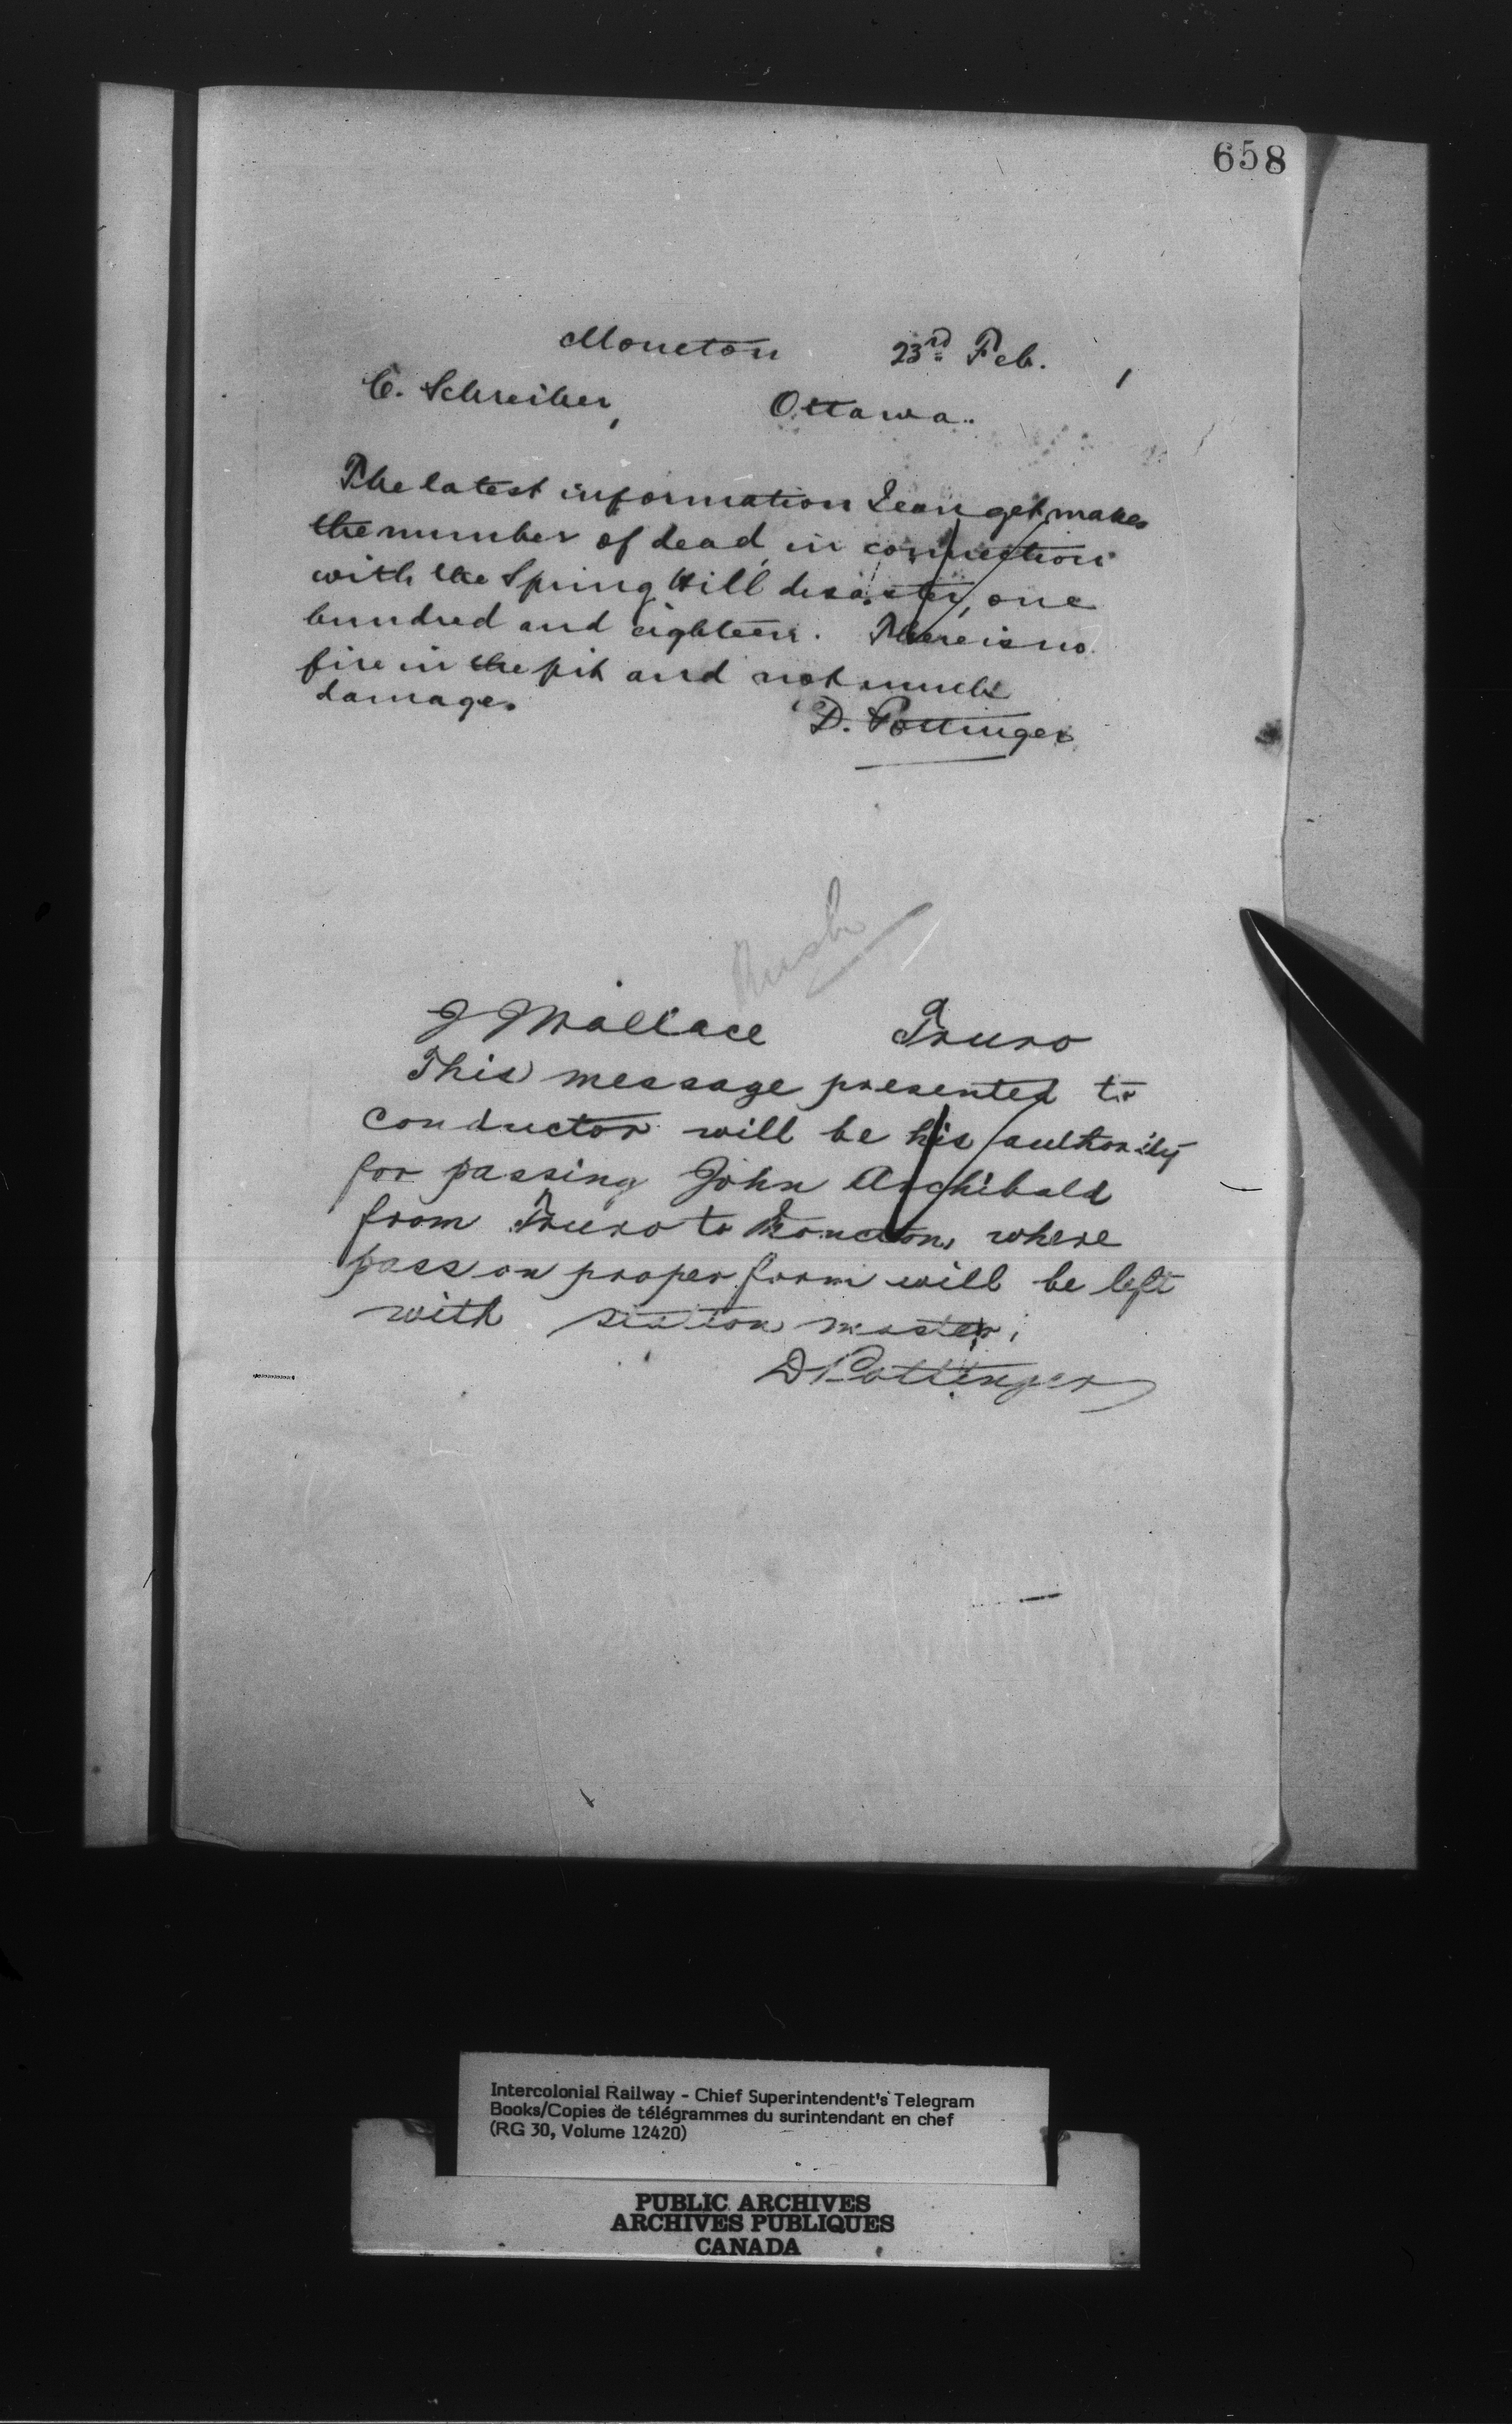 658
Moncton 23rd Feb.
C. Schreiber, Ottawa.
The latest information I can get makes
the number of dead, in connection
with the Spring Hill disaster, one
hundred and eighteen. There is no
fire in the pit and not much
damage.
D. Pottinger
Rush
J J Wallace Truro
This message presented to
conductor will be his authority
for passing John Archibald
from Truro to Moncton, where
pass on proper form will be left
with station master.
D Pottinger
Intercolonial Railway - Chief Superintendent's Telegram
Books/Copies de télégrammes du surintendant en chef
(RG 30, Volume 12420)
PUBLIC ARCHIVES
ARCHIVES PUBLIQUES
CANADA